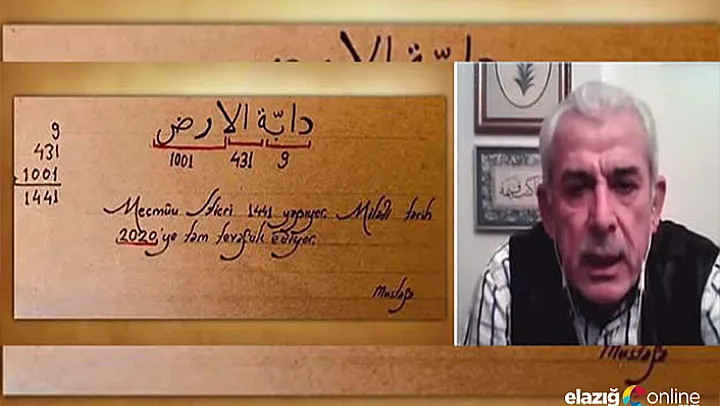 دابّة الارض
1001 431 9
9
431
1001
1441
Mecmûu Hicri 1441 yapıyor. Milâdî tarih
2020'ye tam tevafuk ediyor.
Mustafa
Mustafa
elazığ online